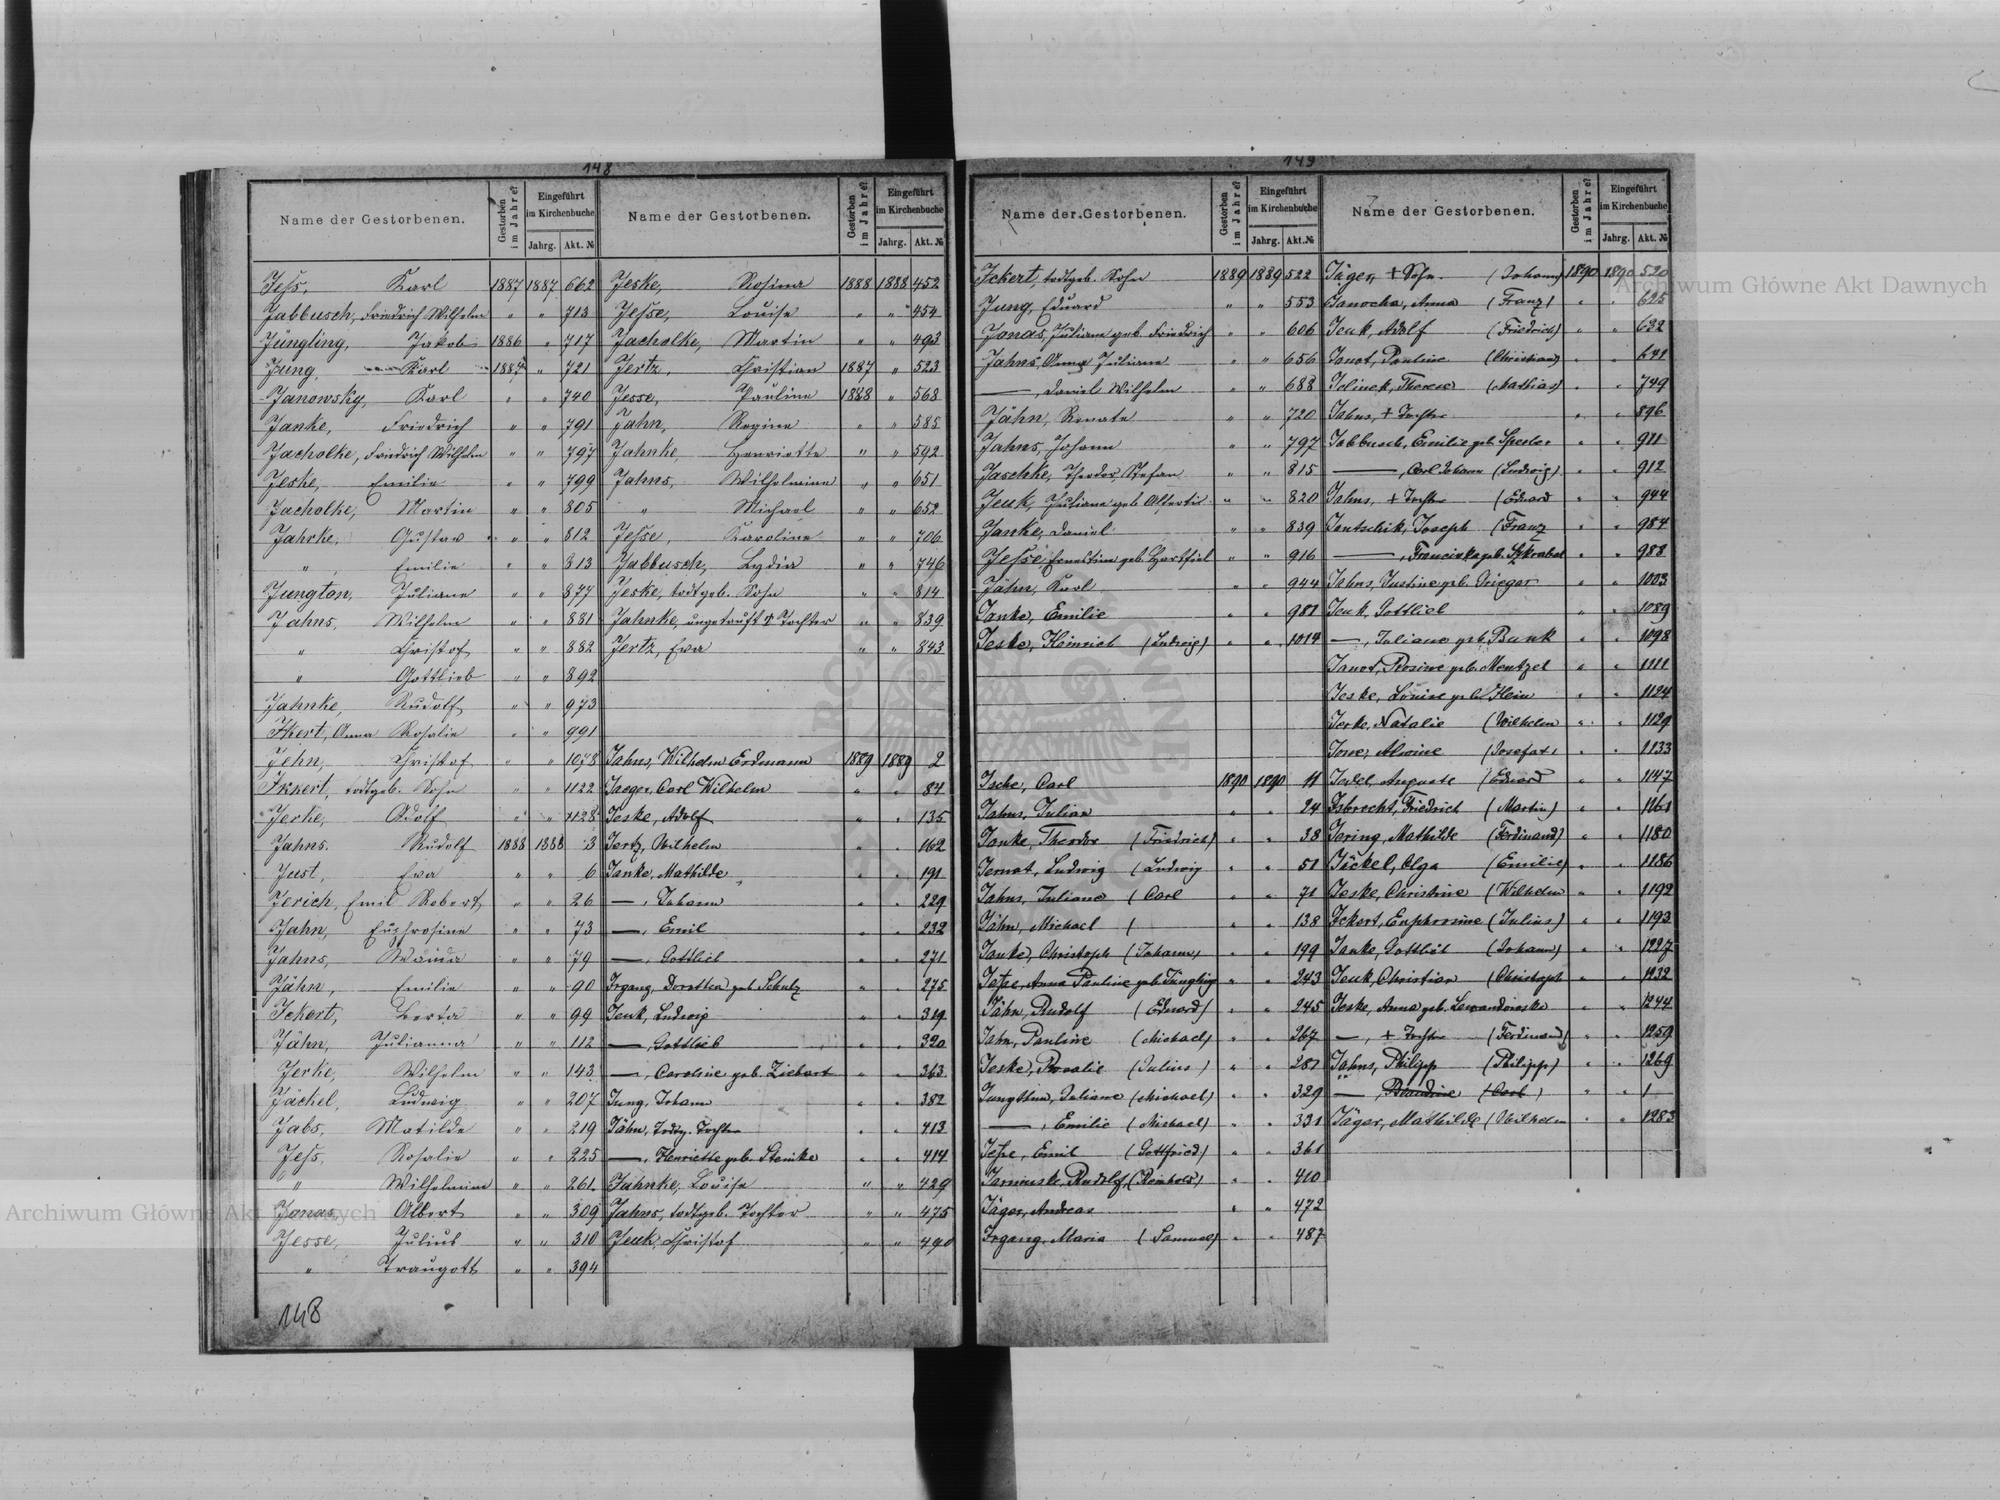 148
Name der Gestorbenen. Gestorben im Jahre? Eingeführt im Kirchenbuche Jahrg. Akt. №
Jess, Karl 1887 1887 662
Jabbusch, Friedrich Wilhelm " " 713
Jüngling, Jakob 1886 " 717
Jung, Karl 1887 " 721
Janowsky, Karl " " 740
Janke, Friedrich " " 791
Jacholke, Friedrich Wilhelm " " 797
Jeske, Emilie " " 799
Jacholke, Martin " " 805
Jahrke, Gustav " " 812
" Emilie " " 813
Jungton, Juliane " " 877
Jahns, Wilhelm " " 881
" Christof " " 882
" Gottlieb " " 892
Jahnke, Rudolf " " 973
Ikert, Anna Rosalie " " 991
Jehn, Christof " " 1078
Ikkert, todtgeb. Sohn " " 1122
Jerke, Adolf " " 1128
Jahns, Rudolf 1888 1888 3
Just, Eva " " 6
Jerich, Emil Robert " " 26
Jahn, Euphrosine " " 73
Jahns, Wanda " " 79
Jähn, Emilie " " 90
Ickert, Berta " " 99
Jähn, Julianna " " 112
Jerke, Wilhelm " " 143
Jäckel, Ludwig " " 207
Jabs, Matilde " " 219
Jess, Rosalie " " 225
" Wilhelmine " " 261
Jonas, Albert " " 309
Jesse, Julius " " 310
" Traugott " " 394
148
Name der Gestorbenen. Gestorben im Jahre? Eingeführt im Kirchenbuche Jahrg. Akt. №
Jeske, Rosina 1888 1888 452
Jesse, Louise " " 454
Jacholke, Martin " " 493
Jertz, Christian 1887 " 523
Jesse, Pauline 1888 " 568
Jahn, Regine " " 585
Jahnke, Henriette " " 592
Jahns, Wilhelmine " " 651
" Michael " " 652
Jesse, Karoline " " 706
Jabbusch, Lydia " " 746
Jeske, todtgeb. Sohn " " 814
Jahnke, ungetauft Tochter " " 839
Jertz, Eva " " 843
Jahns, Wilhelm Erdmann 1889 1889 2
Jaeger, Carl Wilhelm " " 84
Jeske, Adolf " " 135
Jertz, Wilhelm " " 162
Janke, Mathilde " " 191
—, Johann " " 229
—, Emil " " 232
—, Gottlieb " " 271
Irgang, Dorothea geb. Schulz " " 275
Jeuk, Ludwig " " 319
—, Gottlieb " " 320
—, Caroline geb. Ziebart " " 363
Jung, Johann " " 382
Jähn, Todtg. Tochter " " 413
—, Henriette geb. Steinke " " 414
Jahnke, Louise " " 429
Jahns, todtgeb. Tochter " " 475
Jeuk, Christof " " 490
149
Name der Gestorbenen. Gestorben im Jahre? Eingeführt im Kirchenbuche Jahrg. Akt. №
Ickert, todtgeb. Sohn 1889 1889 522
Jung, Eduard " " 553
Jonas, Juliane geb. Friedrich " " 606
Jahns, Anna Juliane " " 656
—, Daniel Wilhelm " " 688
Jähn, Renate " " 720
Jahns, Johann " " 797
Jaschke, Theodor Stefan " " 815
Jeuk, Juliane geb. " " 820
Janke, Daniel " " 839
Jesse Ernestine geb. " " 916
Jähn, Karl " " 944
Janke, Emilie " " 981
Jeske, Heinrich (Ludwig) " " 1014
Jsche, Carl 1890 1890 11
Jahns, Julian " 24
Janke, Theodor (Friedrich) " " 38
Jernat, Ludwig (Ludwig " " 51
Jahns, Juliane (Carl " " 71
Jähn, Michael ( " " 138
Janke, Christoph (Johann) " " 199
Jesse, Anna Pauline geb Jüngling " " 243
Jähn, Rudolf (Eduard) " " 245
Jahn, Pauline (Michael) " " 267
Jeske, Rosalie (Julius) " " 281
Jungton, Juliane (Michael) " " 329
—, Emilie (Michael) " " 331
Jesse, Emil (Gottfried) " " 361
Rudolf, (Reinhold) " " 410
Jäger, Andreas " " 472
Irgang, Maria (Samuel) " " 487
Name der Gestorbenen. Gestorben im Jahre? Eingeführt im Kirchenbuche Jahrg. Akt. №
Jäger, + Sohn (Johann) 1890 1890 520
Janocha, Anna (Franz) " " 625
Jeuk, Adolf (Friedrich) " " 632
Janot, Pauline (Christian) " " 641
Jelinek, Therese (Mathias) " " 749
Jahns, + Tochter " " 896
Jabbusch, Emilie geb. " " 911
—, Carl Johann (Ludwig) " " 912
Jahns, + Tochter (Eduard " " 944
Jantschik, Joseph (Franz " " 984
—, Franciska geb. Skrabal " " 988
Jahns, Justine geb. Krieger " " 1003
Jeuk, Gottlieb " " 1089
—, Juliane geb. Bunk " " 1098
Janot, Rosine geb. Mentzel " " 1111
Jeske, Louise geb. Hein " " 1124
Jerke, Natalie (Wilhelm " " 1129
Alwine (Josefat) " " 1133
Jeckel, Auguste (Eduard " " 1147
Isbrecht, Friedrich (Martin) " " 1161
Jering, Mathilde (Ferdinand) " " 1180
Jäckel, Olga (Emilie) " " 1186
Jeske, Christine (Wilhelm " " 1192
Ickert, Euphrosine (Julius) " " 1193
Janke, Gottlieb (Johann) " " 1227
Jeuk, Christian (Christoph " " 1232
Jeske, Anna geb. Lewandowska " " 1244
—, + Tochter (Ferdinand) " " 1259
Jahns, Philipp (Philipp) " " 1269
— (Carl) " "
Jäger, Mathilde (Wilhelm " " 1283
Archiwum Główne Akt Dawnych
Archiwum Główne Akt Dawnych